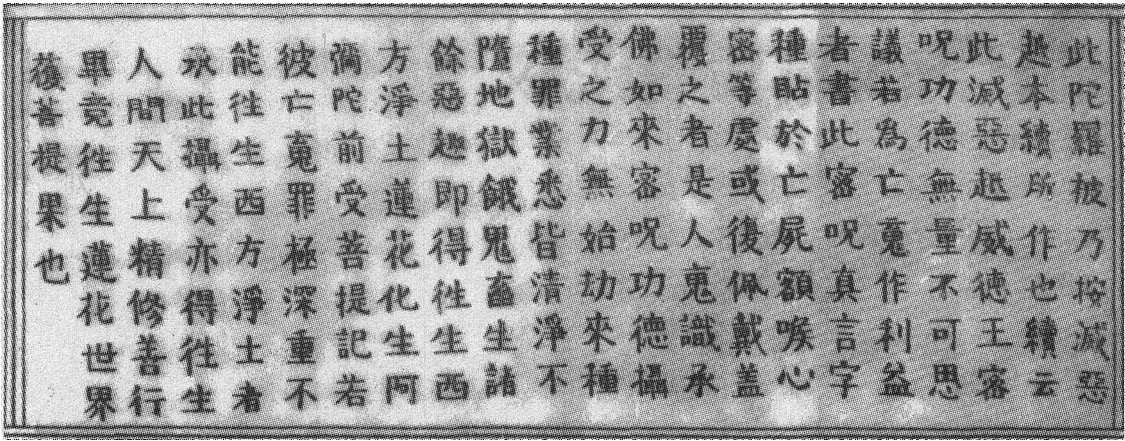 此陀羅被乃按滅惡
趣本續所作也續云
此滅惡趣威德王密
呪功德無量不可思
議若為亡䰟作利益
者書此密呪真言字
種貼於亡屍額喉心
密等處或後佩戴盖
覆之者是人䰟識承
佛如來密呪功德攝
受之力無始劫來種
種罪業悉皆清淨不
墮地獄餓鬼畜生諸
餘惡趣即得徃生西
方淨土蓮花化生阿
彌陀前受菩提記若
彼亡䰟罪極深重不
能徃生西方淨土者
承此攝受亦得徃生
人間天上精修善行
畢竟徃生蓮花世界
獲菩提果也